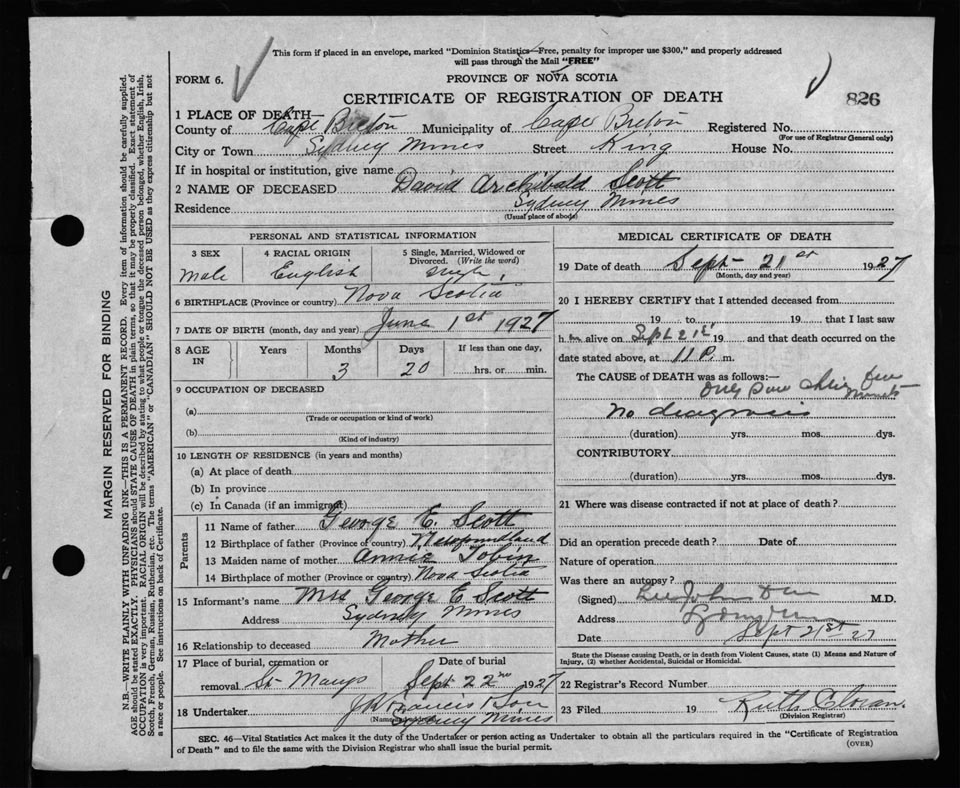 This form if placed in an envelope, marked "Dominion Statistics—Free, penalty for improper use $300," and properly addressed
will pass through the Mail "FREE"
FORM 6.
PROVINCE OF NOVA SCOTIA
CERTIFICATE OF REGISTRATION OF DEATH
826
1 PLACE OF DEATH—
County of Cape Breton Municipality of Cape Breton Registered No.
(For use of Registrar General only)
City or Town Sydney Mines Street King House No.
If in hospital or institution, give name
2 NAME OF DECEASED David Archibald Scott
Residence Sydney Mines
(Usual place of abode)
PERSONAL AND STATISTICAL INFORMATION
3 SEX 4 RACIAL ORIGIN 5 Single, Married, Widowed or
Divorced. (Write the word)
Male English Single
6 BIRTHPLACE (Province or country) Nova Scotia
7 DATE OF BIRTH (month, day and year) June 1st 1927
8 AGE IN Years Months Days If less than one day,
3 20 hrs. or min.
9 OCCUPATION OF DECEASED
(a)
(Trade or occupation or kind of work)
(b)
(Kind of industry)
10 LENGTH OF RESIDENCE (in years and months)
(a) At place of death
(b) In province
(c) In Canada (if an immigrant)
Parents
11 Name of father George E. Scott
12 Birthplace of father (Province or country) Newfoundland
13 Maiden name of mother Annie Tobin
14 Birthplace of mother (Province or country) Nova Scotia
15 Informant's name Mrs George E Scott
Address Sydney Mines
16 Relationship to deceased Mother
17 Place of burial, cremation or Date of burial
removal St Marys Sept 22nd 1927
18 Undertaker Francis & Son
Sydney Mines
MEDICAL CERTIFICATE OF DEATH
19 Date of death Sept 21st 1927
(Month, day and year)
20 I HEREBY CERTIFY that I attended deceased from
19 to 19 that I last saw
him alive on Sept 21st 19 and that death occurred on the
date stated above, at 11 P. m.
The CAUSE of DEATH was as follows:—
Only saw few
No diagnosis
(duration) yrs. mos. dys.
CONTRIBUTORY
(duration) yrs. mos. dys.
21 Where was disease contracted if not at place of death?
Did an operation precede death? Date of
Nature of operation
Was there an autopsy?
(Signed) M.D.
Address
Date Sept 21st 27
State the Disease causing Death, or in death from Violent Causes, state (1) Means and Nature of
Injury, (2) whether Accidental, Suicidal or Homicidal.
22 Registrar's Record Number
23 Filed 19 Ruth Cloran
(Division Registrar)
SEC. 46—Vital Statistics Act makes it the duty of the Undertaker or person acting as Undertaker to obtain all the particulars required in the "Certificate of Registration
of Death" and to file the same with the Division Registrar who shall issue the burial permit.
(OVER)
MARGIN RESERVED FOR BINDING
N.B.—WRITE PLAINLY WITH UNFADING INK—THIS IS A PERMANENT RECORD. Every item of information should be carefully supplied.
AGE should be stated EXACTLY. PHYSICIANS should STATE CAUSE OF DEATH in plain terms, so that it may be properly classified. Exact statement of
OCCUPATION is very important. RACIAL ORIGIN will be described by stating to what people or tongue the deceased person belonged, whether English, Irish,
Scotch, French, German, Russian, Ruthenian, etc. The terms "AMERICAN" or "CANADIAN" SHOULD NOT BE USED as they express citizenship but not
a race or people. See instructions on back of Certificate.